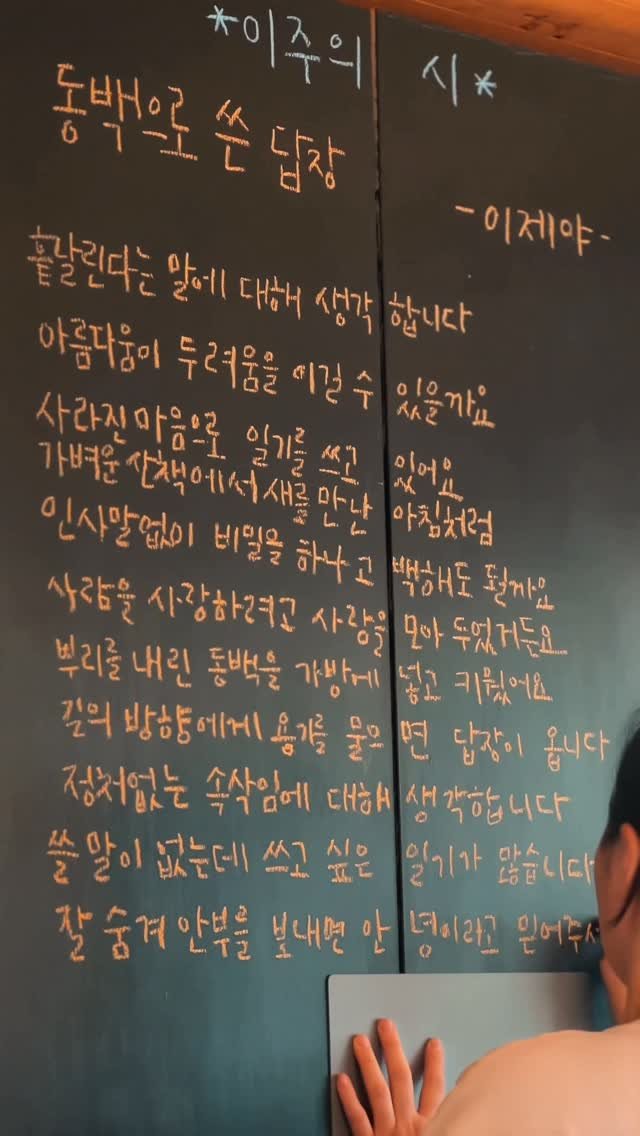 *이주의 시*
동백으로 쓴 답장
-이제야-
흩날린다는 말에 대해 생각 합니다
아름다움이 두려움을 이길 수 있을까요
사라진 마음으로 일기를 쓰고 있어요
가벼운 산책에서 새를 만난 아침처럼
인사말없이 비밀을 하나 고백해도 될까요
사람을 사랑하려고 사랑을 모아 두었거든요
뿌리를 내린 동백을 가방에 넣고 키웠어요
길의 방향에게 용기를 물으면 답장이 옵니다
정처없는 속삭임에 대해 생각합니다
쓸 말이 없는데 쓰고 싶은 일기가 많습니다
잘 숨겨 안부를 보내면 안녕이라고 믿어주